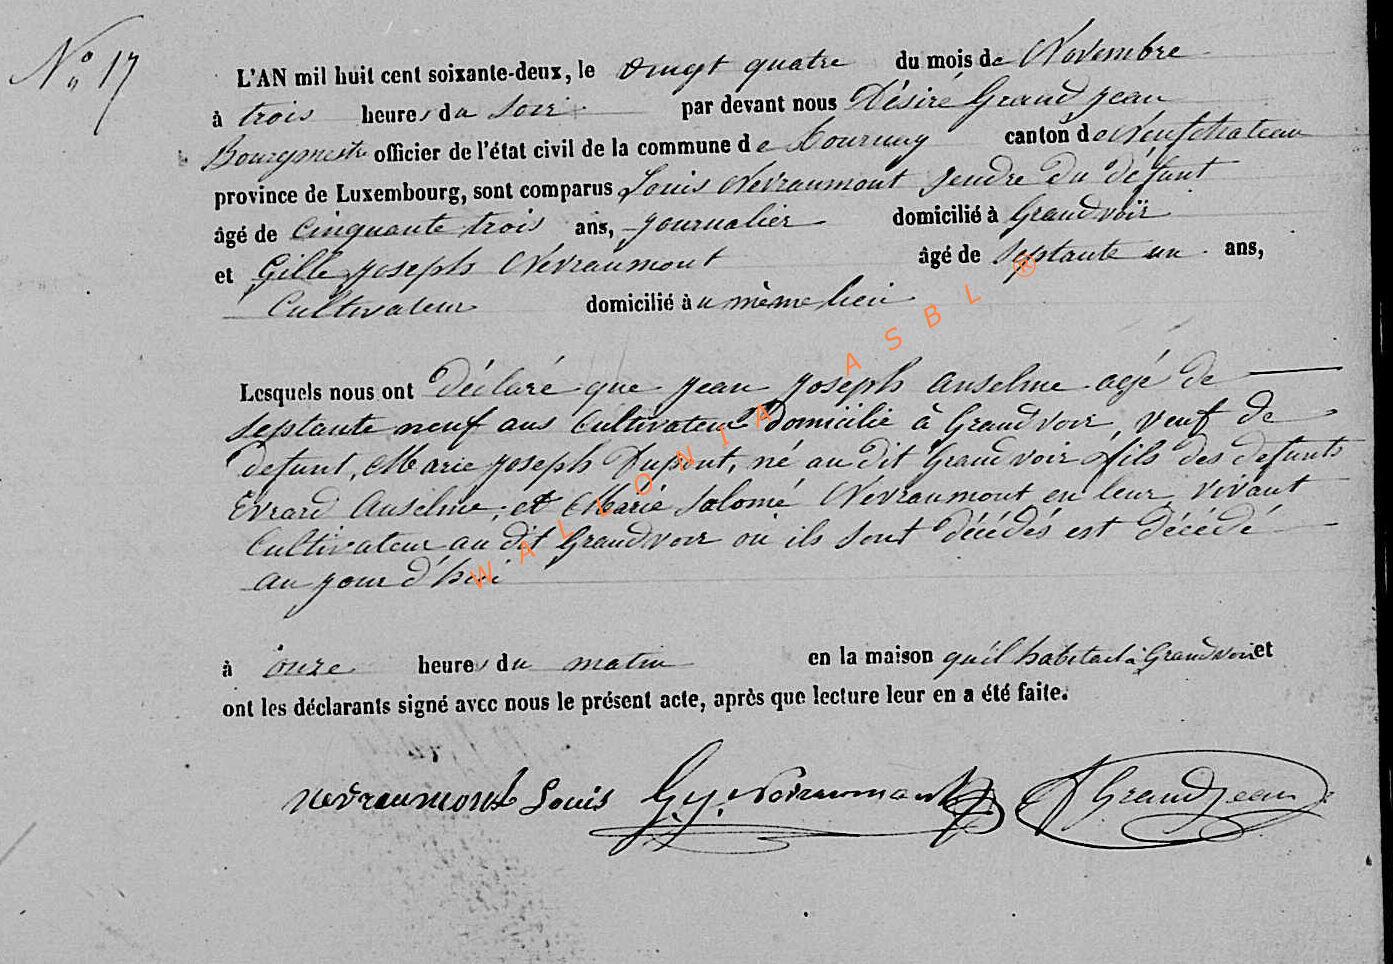 No 17
L'AN mil huit cent soixante-deux, le vingt quatre du mois de Novembre
à trois heures du soir par devant nous Désiré Grandjean
Bourgmestre officier de l'état civil de la commune de Tournay canton de Neufchateau
province de Luxembourg, sont comparus Louis Nevraumont gendre du défunt
âgé de cinquante trois ans, journalier domicilié à Grandvoir
et Gille Joseph Nevraumont âgé de septante un ans,
Cultivateur domicilié au même lieu
Lesquels nous ont déclaré que Jean Joseph Anselme agé de
septante neuf ans Cultivateur domicilié à Grandvoir, veuf de
defunt, Marie Joseph Dupont, né au dit Grandvoir fils des defunts
Evrard Anselme, et Marie Salomé Nevraumont en leur vivant
Cultivateur au dit Grandvoir où ils sont décédés est décédé
au jour d'hui
à onze heures du matin en la maison qu'il habitait à Grandvoir et
ont les déclarants signé avec nous le présent acte, après que lecture leur en a été faite.
nevraumont Louis G. J. Nevraumont D Grandjean
WALLONIA ASBL ®